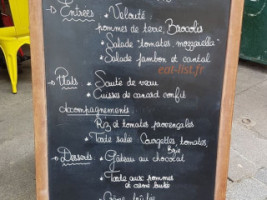 Entrées
• Velouté
pommes de terre, Brocolis
• Salade "tomates mozzarella"
• Salade jambon et cantal
eat-list.fr
Plats
• Sauté de veau
• Cuisses de canard confit
Accompagnements
Riz et tomates provençales
Tarte salée Courgettes, tomates,
Brie
Desserts
• Gâteau au chocolat
• Tarte aux pommes
et crème
• Crème brûlée